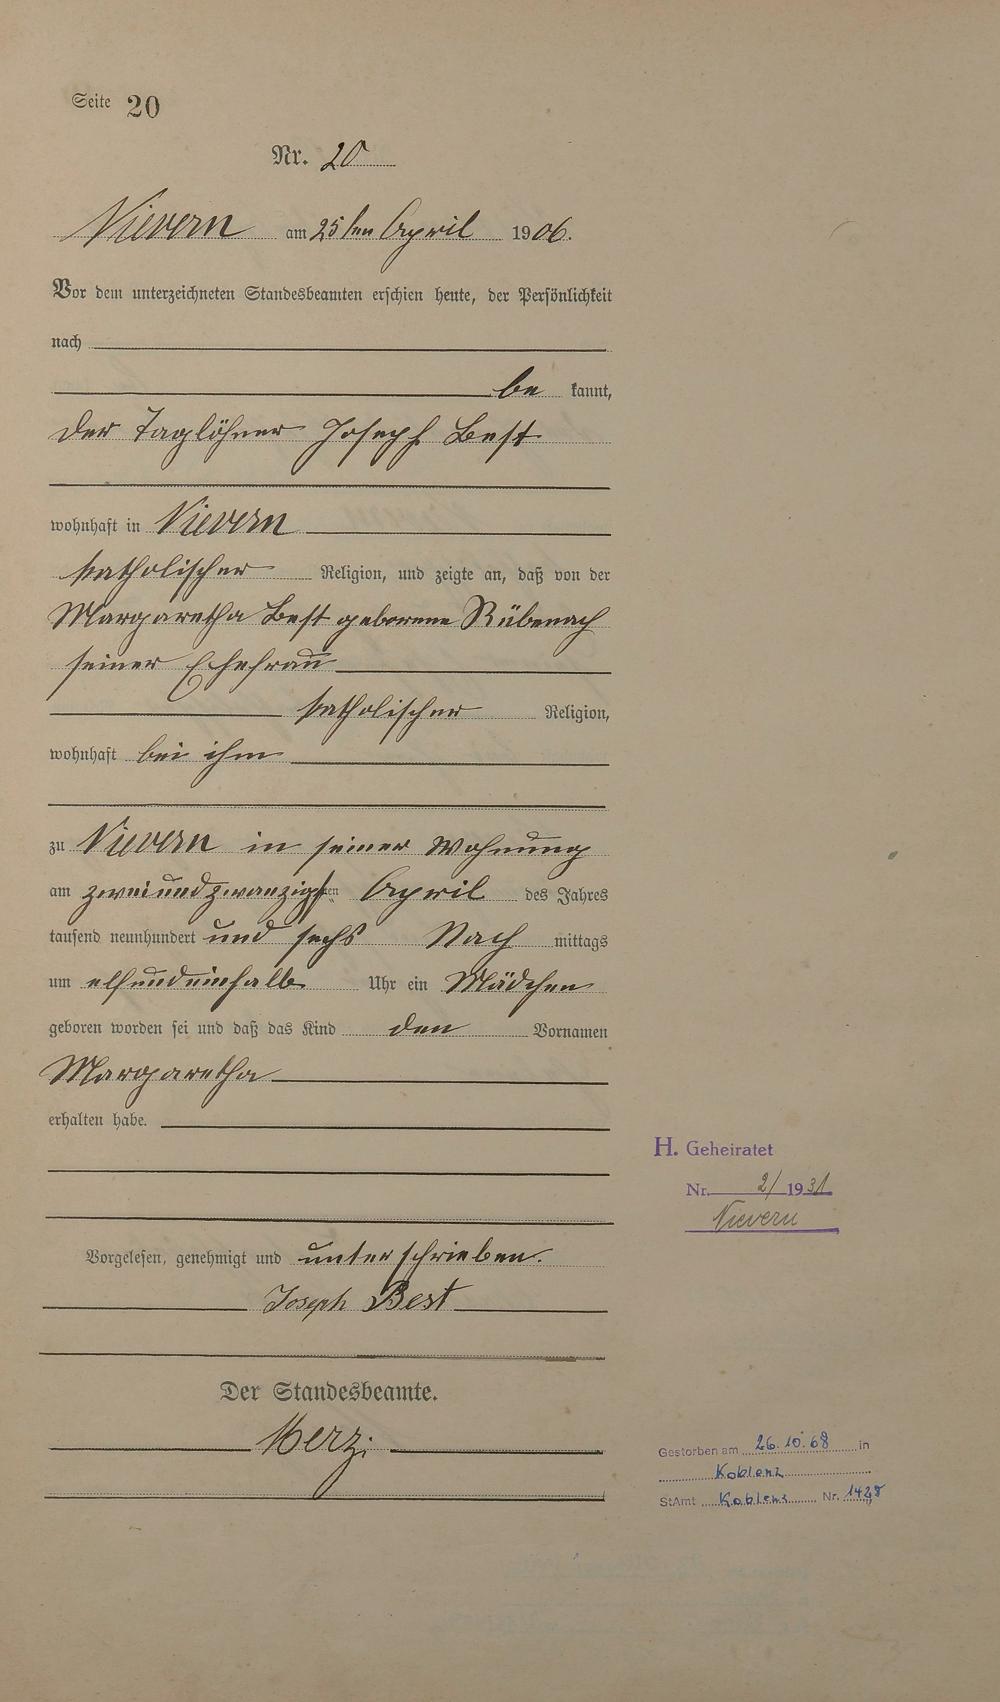 Seite 20
Nr. 20
Nievern am 25ten April 1906.
Vor dem unterzeichneten Standesbeamten erschien heute, der Persönlichkeit
nach
be kannt,
der Taglöhner Joseph Best
wohnhaft in Nievern
katholischer Religion, und zeigte an, daß von der
Margaretha Best geborene Rübenach
seiner Ehefrau
katholischer Religion,
wohnhaft bei ihm
zu Nievern in seiner Wohnung
am zweiundzwanzigsten April des Jahres
tausend neunhundert und sechs Nach mittags
um elfundeinhalb Uhr ein Mädchen
geboren worden sei und daß das Kind den Vornamen
Margaretha
erhalten habe.
H. Geheiratet
Nr. 2/1931
Nievern
Vorgelesen, genehmigt und unterschrieben.
Joseph Best
Der Standesbeamte.
Merz
Gestorben am 26.10.68 in
Koblenz
StAmt Koblenz Nr. 1428